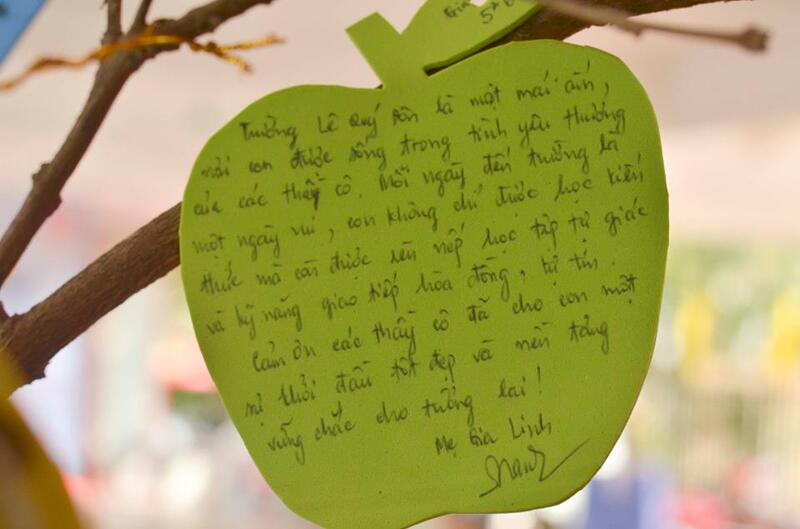 Gia
5
Trường Lê Quý Đôn là một mái ấm,
nơi con được sống trong tình yêu thương
của các thầy cô. Mỗi ngày đến trường là
một ngày vui, con không chỉ được học kiến
thức mà còn được rèn nếp học tập tự giác
và kỹ năng giao tiếp hòa đồng, tự tin.
Cảm ơn các thầy cô đã cho con một
sự khởi đầu tốt đẹp và nền tảng
vững chắc cho tương lai!
Mẹ Gia Linh